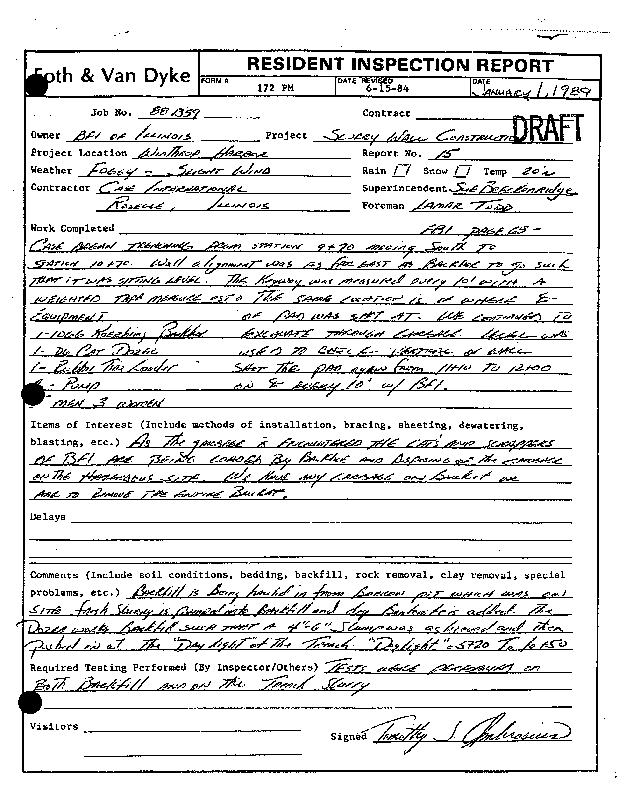 Foth & Van Dyke
RESIDENT INSPECTION REPORT
FORM # 172 PM DATE REVISED 6-15-84 DATE JANUARY 1, 1989
Job No. 88 1339 Contract
DRAFT
Owner BFI OF ILLINOIS Project SLURRY WALL CONSTRUCTION
Project Location WINTHROP HARBOR Report No. 15
Weather FOGGY - SLIGHT WIND Rain Snow Temp 20's
Contractor CASE INTERNATIONAL Superintendent
ROSELLE, ILLINOIS Foreman LAMAR TODD
Work Completed PAGE 65 -
CASE BEGAN TRENCHING FROM STATION 9+70 moving South TO
STATION 10+70. Wall alignment was as far east as Backhoe to go such
THAT IT WAS SITTING LEVEL. The Keyway was measured every 10' with A
WEIGHTED TAPE MEASURE THE SAME LOCATION IS WHERE
EQUIPMENT OF PAD WAS SHOT AT. WE CONTINUED TO
1-1066 Koehring Backhoe EXCAVATE THROUGH GARBAGE. LEVEL WAS
1- CAT DOZER USED TO CHECK VERTICAL OF WALL
1- Rubber Tire Loader SHOT THE PAD again FROM 11+10 TO 12+00
- PUMP ON EVERY 10' w/ BFI.
MEN 3 WOMEN
Items of Interest (Include methods of installation, bracing, sheeting, dewatering,
blasting, etc.) AS The GARBAGE IS ENCOUNTERED THE CATS AND SCRAPPERS
OF BFI ARE BEING LOADED By BACKHOE AND DISPOSING OF The GARBAGE
ON THE HAZARDOUS SITE. We HAVE ANY GARBAGE ON BUCKET WE
ARE TO REMOVE THE ENTIRE BUCKET.
Delays
Comments (Include soil conditions, bedding, backfill, rock removal, clay removal, special
problems, etc.) Backfill is being hauled in from BORROW PIT WHICH WAS ON
SITE fresh Slurry is pumped into Backfill and dry Bentonite is added. The
DOZER works Backfill SUCH THAT A 4"-6" Slump was achieved and then
pushed in at the "Daylight" of the Trench. "Daylight" = 5+20 To 10+50
Required Testing Performed (By Inspector/Others) TESTS WERE PERFORMED ON
Both Backfill AND ON THE Trench Slurry
Visitors
Signed Timothy J. Ambrosius